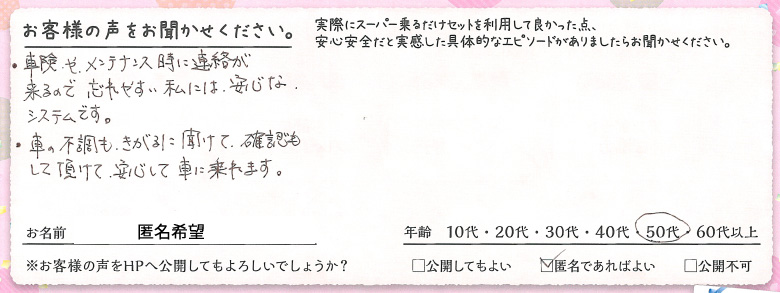 お客様の声をお聞かせください。
実際にスーパー乗るだけセットを利用して良かった点、
安心安全だと実感した具体的なエピソードがありましたらお聞かせください。
・車険や、メンテナンス時に連絡が
来るので忘れやすい私には、安心な、
システムです。
・車の不調も、きがるに聞けて、確認も
して頂けて、安心して車に乗れます。
お名前 匿名希望
年齢 10代・20代・30代・40代・50代・60代以上
※お客様の声をHPへ公開してもよろしいでしょうか？ □公開してもよい ☑匿名であればよい □公開不可